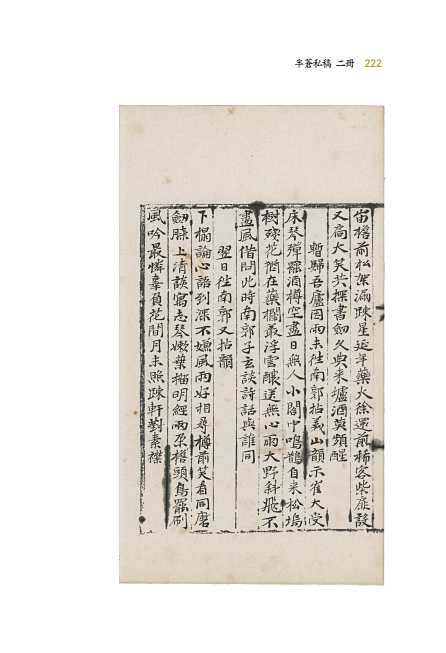 半蒼私稿 二冊 222
當檐前松架滿踈星延年藥火徐還前稀客柴扉設
又高大笑共探書劍久與來壚酒莫頻醒
暫歸吾廬因雨未往南郭拈義山韻示崔大受
床琴殫罷酒樽空盡日無人小閤中鳴鵲自來松塢
樹殘花猶在藥欄叢浮雲釀送無心雨大野斜飛不
盡風借問此時南郭子玄談詩話與誰同
翌日往南郭又拈韻
下榻論心語到深不嫌風雨好相尋樽前笑看同磨
劍膝上清談寫志琴嫩葉描明經雨朶檐頭鳥罷刷
風吟最憐辜負花間月未照踈軒對素襟